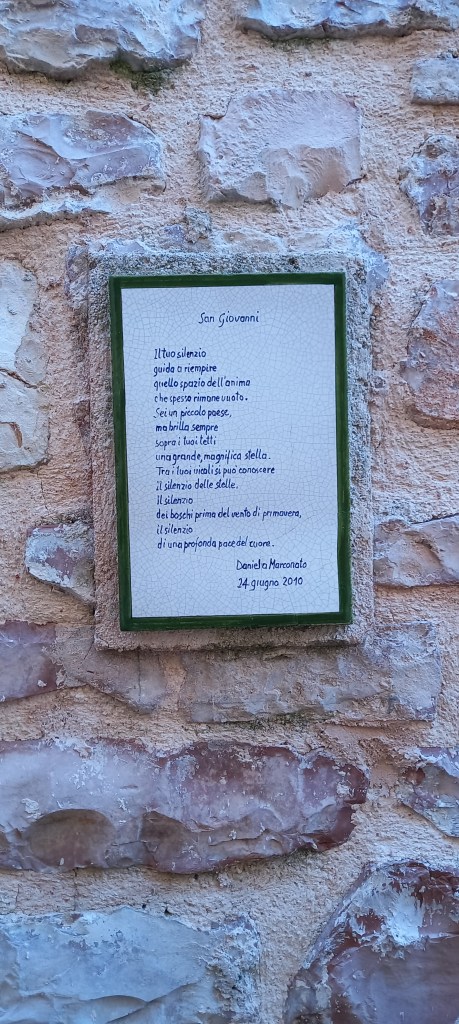 San Giovanni
Il tuo silenzio
guida a riempire
quello spazio dell'anima
che spesso rimane vuoto.
Sei un piccolo paese,
ma brilla sempre
sopra i tuoi tetti
una grande, magnifica stella.
Tra i tuoi vicoli si può conoscere
il silenzio delle stelle.
Il silenzio
dei boschi prima del vento di primavera,
il silenzio
di una profonda pace del cuore.
Daniela Marconato
24 giugno 2010